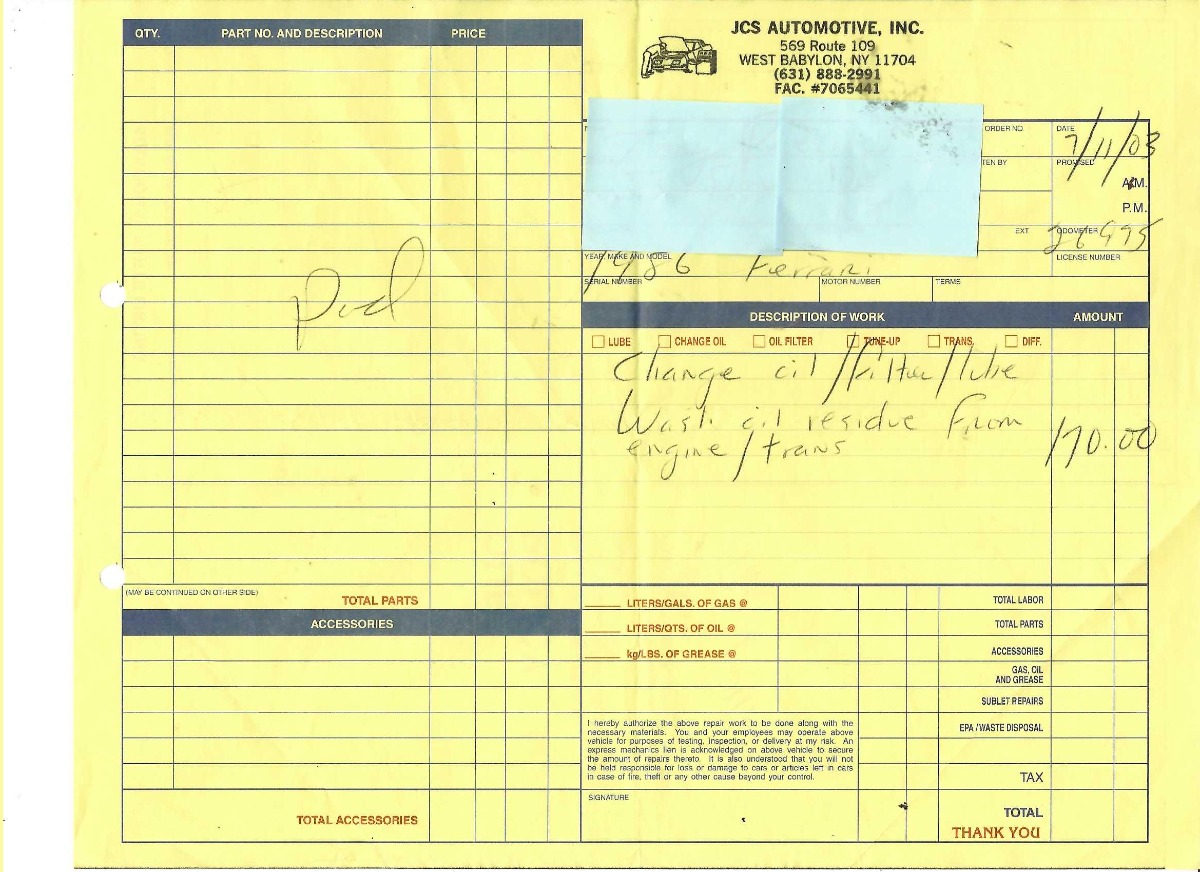 QTY. PART NO. AND DESCRIPTION PRICE
JCS AUTOMOTIVE, INC.
569 Route 109
WEST BABYLON, NY 11704
(631) 888-2991
FAC. #7065441
ORDER NO. DATE
7/11/03
TEN BY PROMISED
A.M.
P.M.
EXT ODOMETER
26975
YEAR, MAKE AND MODEL LICENSE NUMBER
1986 Ferrari
SERIAL NUMBER MOTOR NUMBER TERMS
Pad
DESCRIPTION OF WORK AMOUNT
LUBE CHANGE OIL OIL FILTER TUNE-UP TRANS. DIFF.
Change oil/filter/lube
Wash oil residue from
engine/trans 170.00
(MAY BE CONTINUED ON OTHER SIDE) TOTAL PARTS
ACCESSORIES
TOTAL ACCESSORIES
LITERS/GALS. OF GAS @
LITERS/QTS. OF OIL @
kg/LBS. OF GREASE @
TOTAL LABOR
TOTAL PARTS
ACCESSORIES
GAS, OIL
AND GREASE
SUBLET REPAIRS
EPA / WASTE DISPOSAL
TAX
TOTAL
THANK YOU
I hereby authorize the above repair work to be done along with the
necessary materials. You and your employees may operate above
vehicle for purposes of testing, inspection, or delivery at my risk. An
express mechanics lien is acknowledged on above vehicle to secure
the amount of repairs thereto. It is also understood that you will not
be held responsible for loss or damage to cars or articles left in cars
in case of fire, theft or any other cause beyond your control.
SIGNATURE